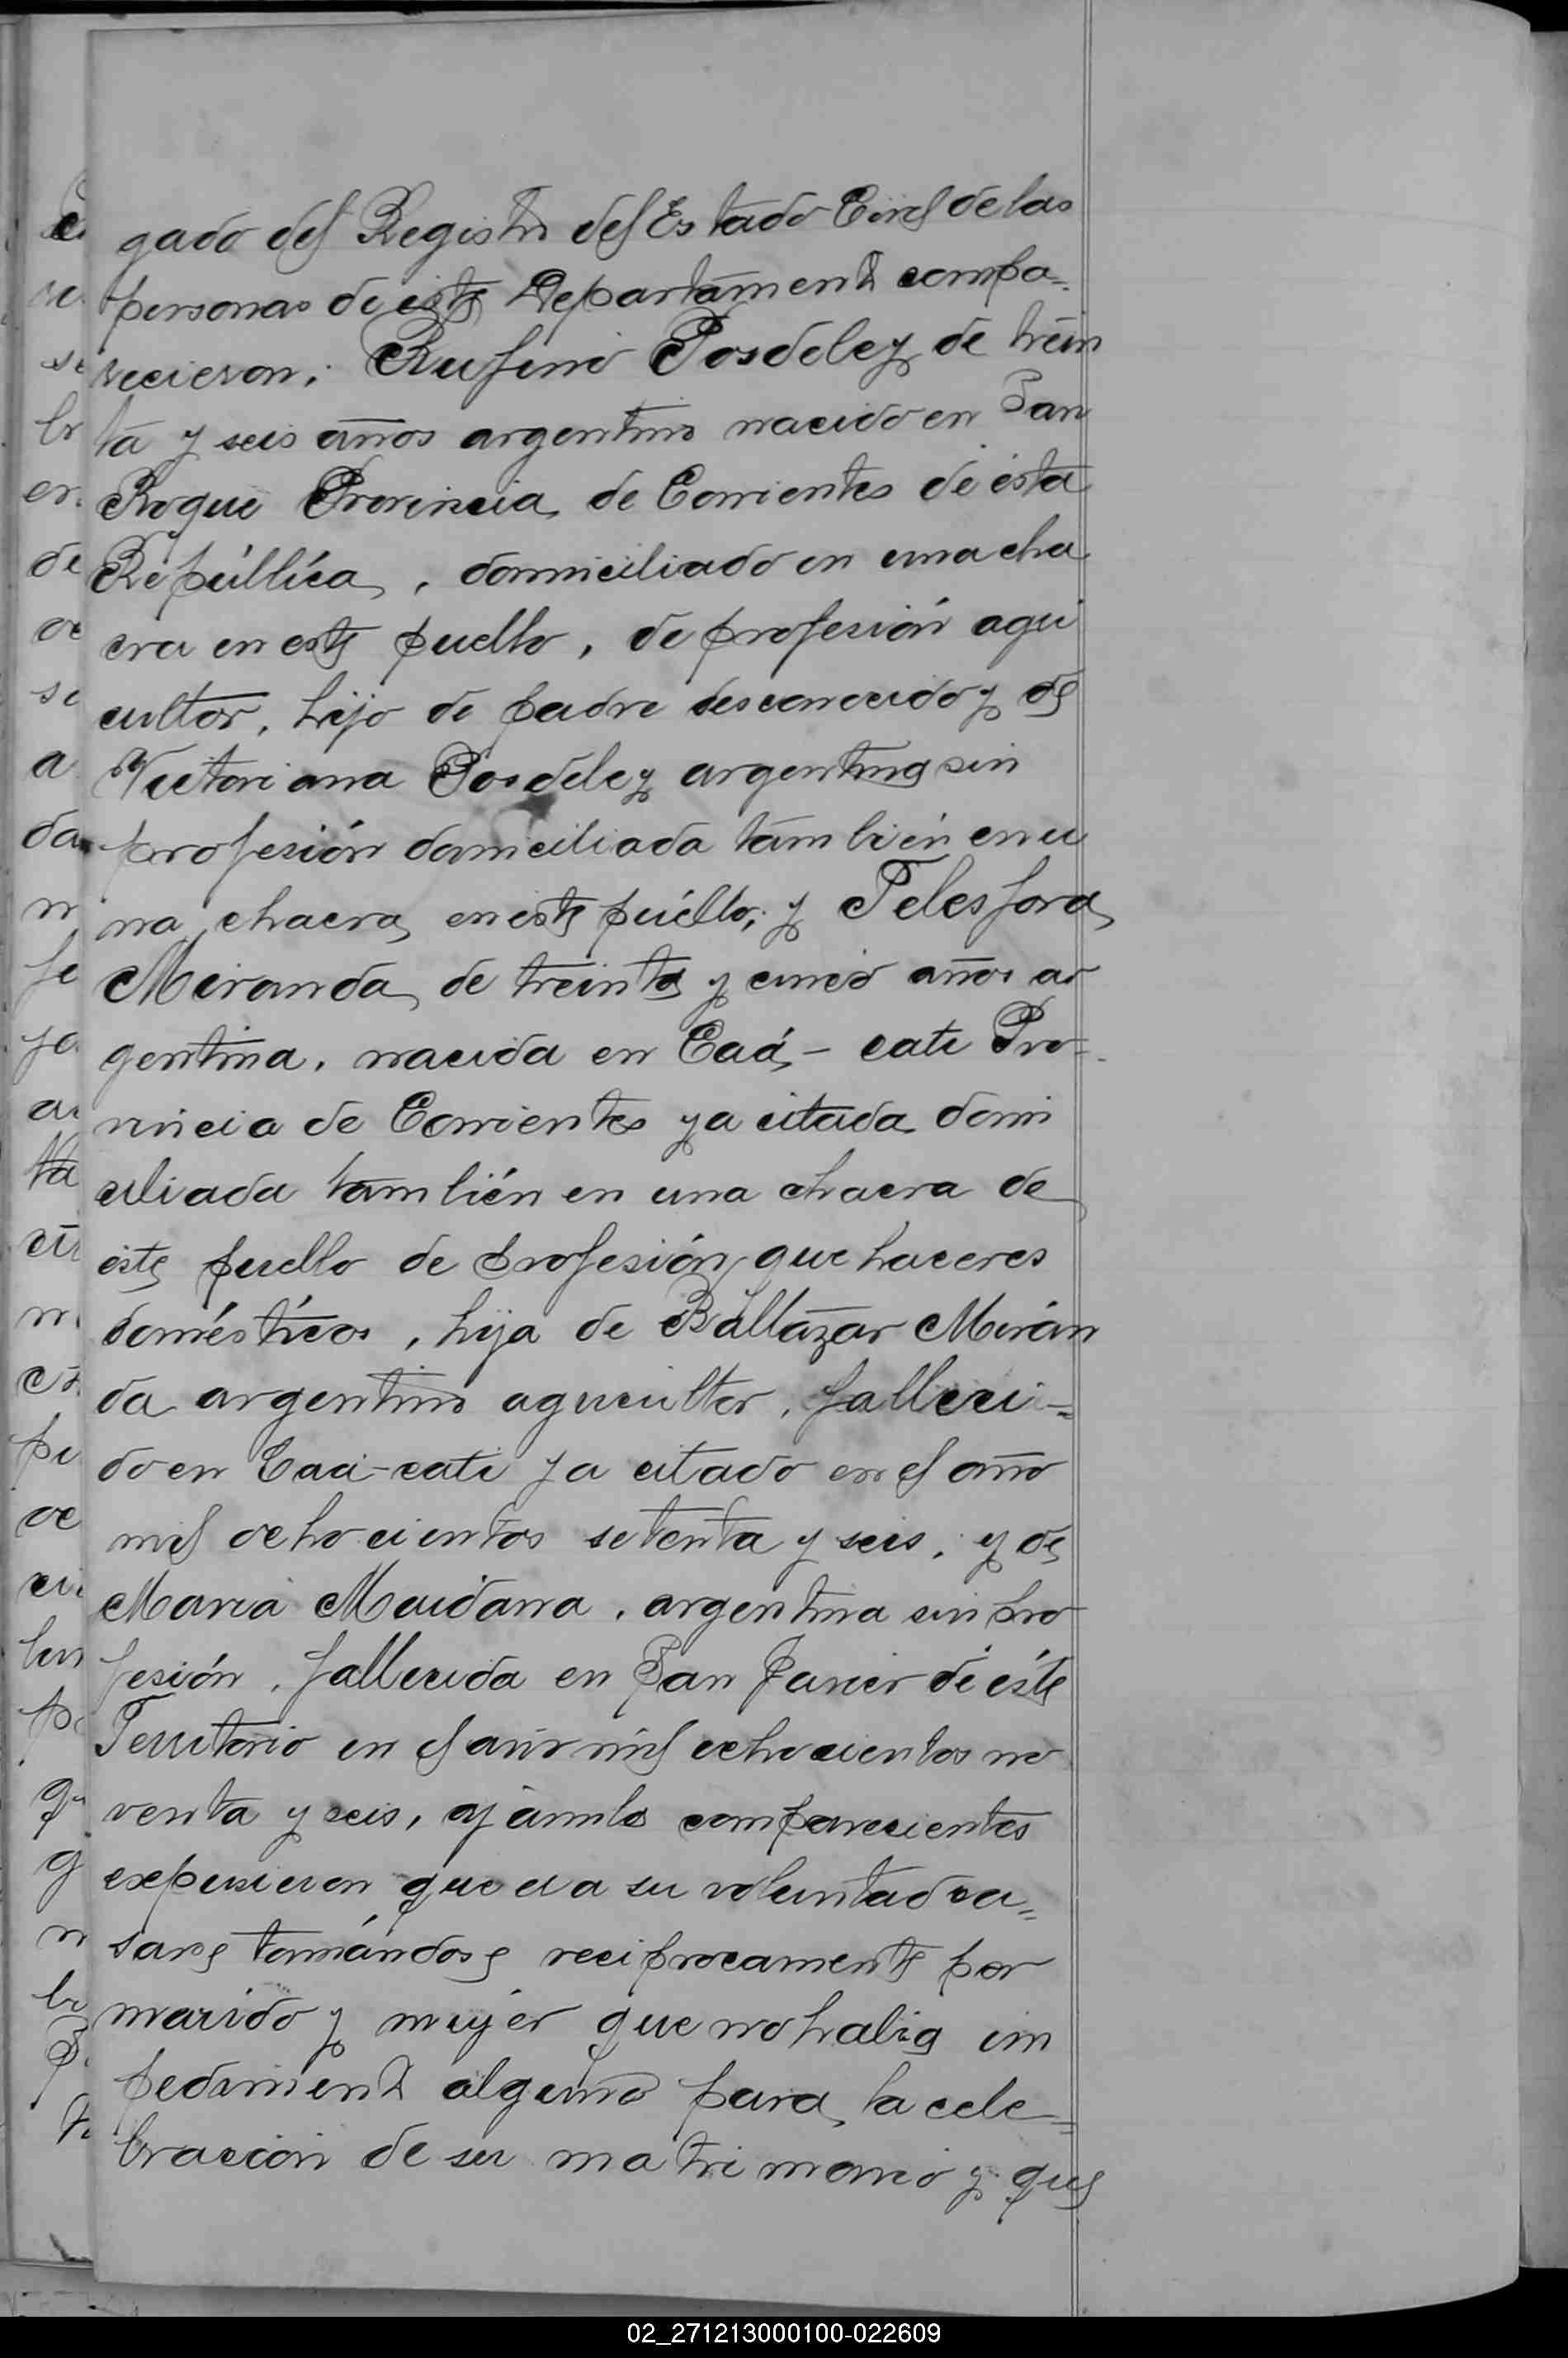 gado del Registro del Estado Civil de las
personas de este Departamento compa=
recieron: Rufino Posdeley de trein
ta y seis años argentino nacido en San
Roque Provincia de Corrientes de ésta
República, domiciliado en una cha
cra en este pueblo, de profesión agri
cultor, hijo de padre desconocido y de
Victoriana Posdeley argentina sin
profesión domiciliada también en u
na chacra en este pueblo; y Telesfora
Miranda de treinta y cinco años ar
gentina, nacida en Caá-cati Pro=
vincia de Corrientes ya citada domi
ciliada también en una chacra de
éste pueblo de profesión que haceres
domésticos, hija de Baltazar Mirán
da argentino agricultor, falleci=
do en Caá-cati ya citado en el año
mil ochocientos setenta y seis, y de
Maria Maidana, argentina sin pro
fesión, fallecida en San Javier de éste
Territorio en el año mil ochocientos no
venta y seis, y ámbos comparecientes
expusieron que era su voluntad ca=
sarse tomándose reciprocamente por
marido y mujer que no habia im
pedimento alguno para la cele=
bración de su matrimonio y que
02_271213000100-022609